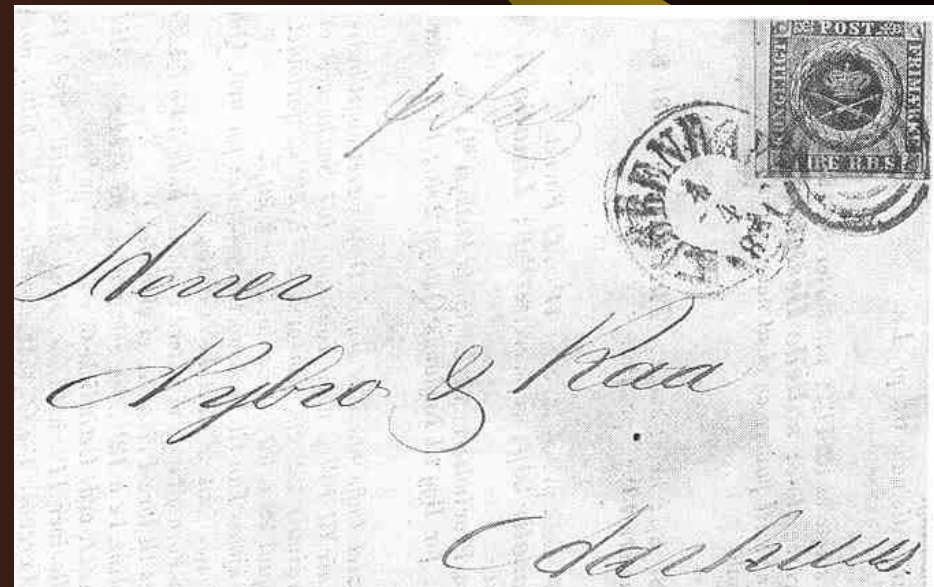 POST
KONGELIGT
FRIMÆRKE
FIRE R.B.S.
4
4
1851
Herrer
Nybro & Raa
Aarhuus.